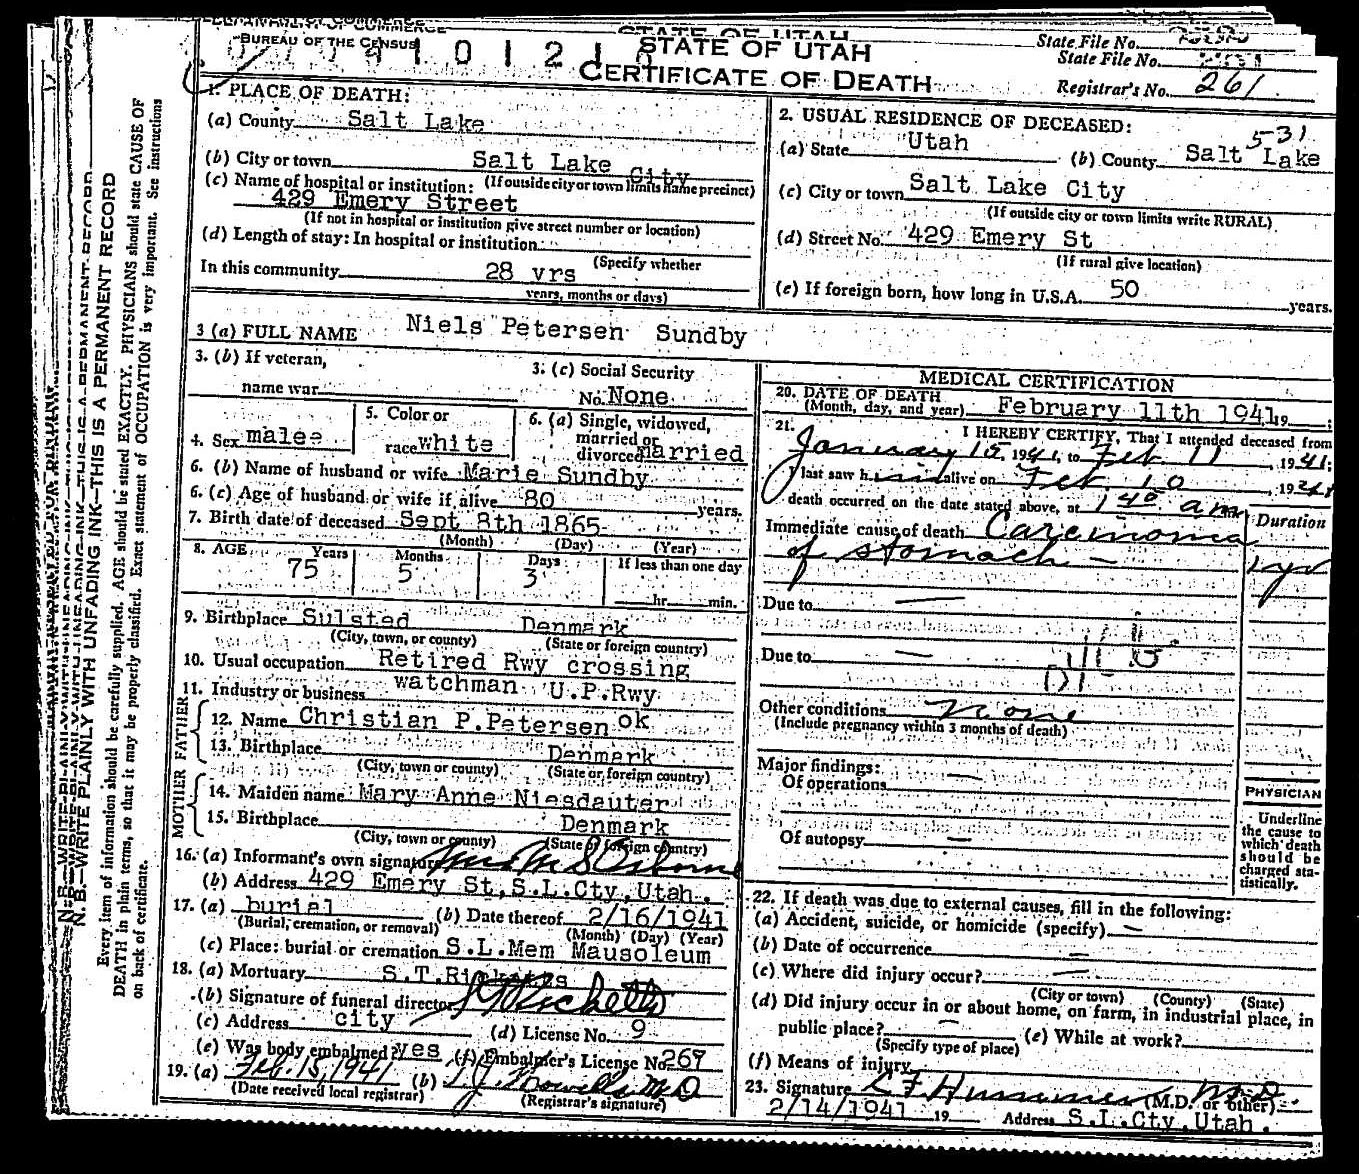 DEPARTMENT OF COMMERCE
BUREAU OF THE CENSUS
STATE OF UTAH
CERTIFICATE OF DEATH
State File No.
State File No.
Registrar's No. 261
1. PLACE OF DEATH:
(a) County Salt Lake
(b) City or town Salt Lake City
(If outside city or town limits name precinct)
(c) Name of hospital or institution:
429 Emery Street
(If not in hospital or institution give street number or location)
(d) Length of stay: In hospital or institution
(Specify whether
In this community 28 yrs
years, months or days)
2. USUAL RESIDENCE OF DECEASED:
531
(a) State Utah (b) County Salt Lake
(c) City or town Salt Lake City
(If outside city or town limits write RURAL)
(d) Street No. 429 Emery St
(If rural give location)
(e) If foreign born, how long in U.S.A. 50 years.
3 (a) FULL NAME Niels Petersen Sundby
3. (b) If veteran,
name war
3. (c) Social Security
No. None
4. Sex male
5. Color or
race white
6. (a) Single, widowed,
married or
divorced married
6. (b) Name of husband or wife Marie Sundby
6. (c) Age of husband or wife if alive 80 years.
7. Birth date of deceased Sept 8th 1865
(Month) (Day) (Year)
8. AGE Years Months Days If less than one day
75 5 3 hr. min.
9. Birthplace Sulsted Denmark
(City, town, or county) (State or foreign country)
10. Usual occupation Retired Rwy crossing
11. Industry or business watchman U.P.Rwy
FATHER
12. Name Christian P.Petersen ok
13. Birthplace Denmark
(City, town or county) (State or foreign country)
MOTHER
14. Maiden name Mary Anne Niesdauter
15. Birthplace Denmark
(City, town or county) (State or foreign country)
16. (a) Informant's own signature Mrs M S Osborne
(b) Address 429 Emery St,S.L.Cty,Utah.
17. (a) burial (b) Date thereof 2/16/1941
(Burial, cremation, or removal) (Month) (Day) (Year)
(c) Place: burial or cremation S.L.Mem Mausoleum
18. (a) Mortuary S.T.Ricketts
(b) Signature of funeral director S T Ricketts
(c) Address city (d) License No. 9
(e) Was body embalmed? yes (f) Embalmer's License No. 269
19. (a) Feb. 15, 1941 (b) M D
(Date received local registrar) (Registrar's signature)
MEDICAL CERTIFICATION
20. DATE OF DEATH
(Month, day, and year) February 11th 1941 19
21. I HEREBY CERTIFY, That I attended deceased from
January 15, 1941, to Feb 11, 1941;
I last saw him alive on Feb 10, 1941
death occurred on the date stated above, at 1 40 a m
Duration
Immediate cause of death Carcinoma
of stomach — 1 yr
Due to —
Due to —
Other conditions none
(Include pregnancy within 3 months of death)
Major findings:
Of operations —
Of autopsy —
PHYSICIAN
Underline
the cause to
which death
should be
charged sta-
tistically.
22. If death was due to external causes, fill in the following:
(a) Accident, suicide, or homicide (specify) —
(b) Date of occurrence —
(c) Where did injury occur? —
(City or town) (County) (State)
(d) Did injury occur in or about home, on farm, in industrial place, in
public place? — (e) While at work?
(Specify type of place)
(f) Means of injury
23. Signature M.D.
(M.D. or other)
2/14/1941 19 Address S.L.Cty,Utah.
N. B.—WRITE PLAINLY WITH UNFADING INK—THIS IS A PERMANENT RECORD
Every item of information should be carefully supplied. AGE should be stated EXACTLY. PHYSICIANS should state CAUSE OF
DEATH in plain terms, so that it may be properly classified. Exact statement of OCCUPATION is very important. See instructions
on back of certificate.